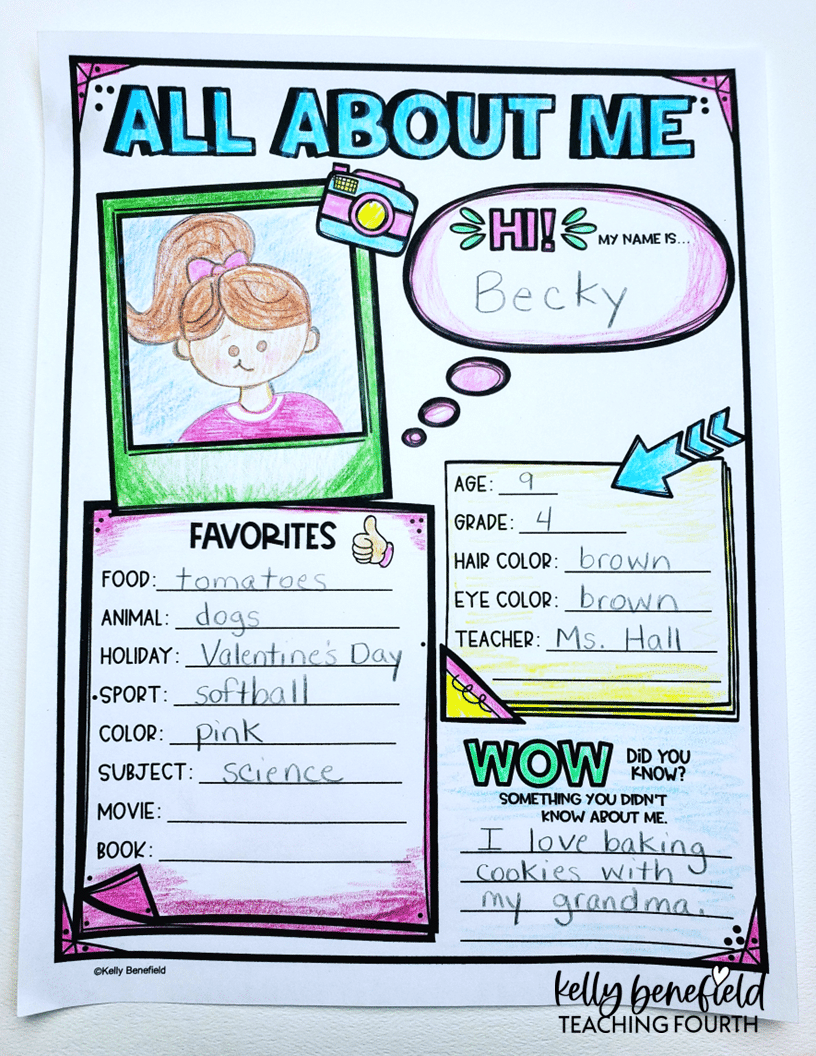 ALL ABOUT ME
HI! MY NAME IS...
Becky
AGE: 9
GRADE: 4
HAIR COLOR: brown
EYE COLOR: brown
TEACHER: Ms. Hall
FAVORITES
FOOD: tomatoes
ANIMAL: dogs
HOLIDAY: Valentine's Day
SPORT: softball
COLOR: pink
SUBJECT: science
MOVIE:
BOOK:
WOW DID YOU
KNOW?
SOMETHING YOU DIDN'T
KNOW ABOUT ME.
I love baking
cookies with
my grandma.
©Kelly Benefield
kelly benefield
TEACHING FOURTH